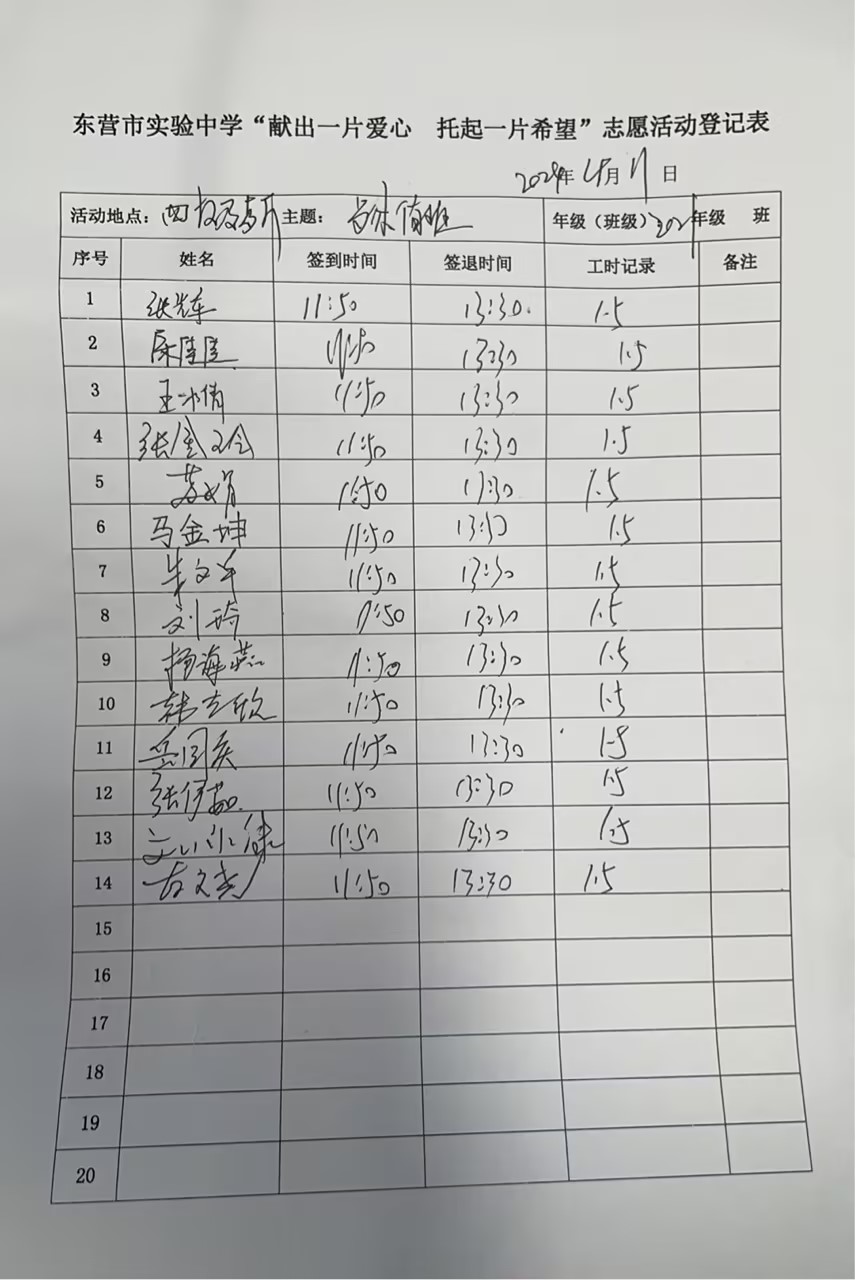 东营市实验中学“献出一片爱心 托起一片希望”志愿活动登记表
2024年4月 日
活动地点: 主题: 年级(班级) 202 年级 班
序号 姓名 签到时间 签退时间 工时记录 备注
1 11:50 13:30. 1.5
2 11:50 13:30 1.5
3 11:50 13:30 1.5
4 11:50 13:30 1.5
5 11:50 13:30 1.5
6 马金坤 11:50 13:30 1.5
7 朱文军 11:50 13:30 1.5
8 刘琦 11:50 13:30 1.5
9 杨海燕 11:50 13:30 1.5
10 11:50 13:30 1.5
11 11:50 13:30 1.5
12 11:50 13:30 1.5
13 11:50 13:30 1.5
14 11:50 13:30 1.5
15
16
17
18
19
20